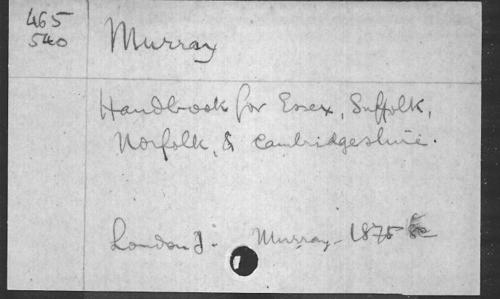 465
540
Murray
Handbook for Essex, Suffolk,
Norfolk, & Cambridgeshire.
London J. Murray 1875